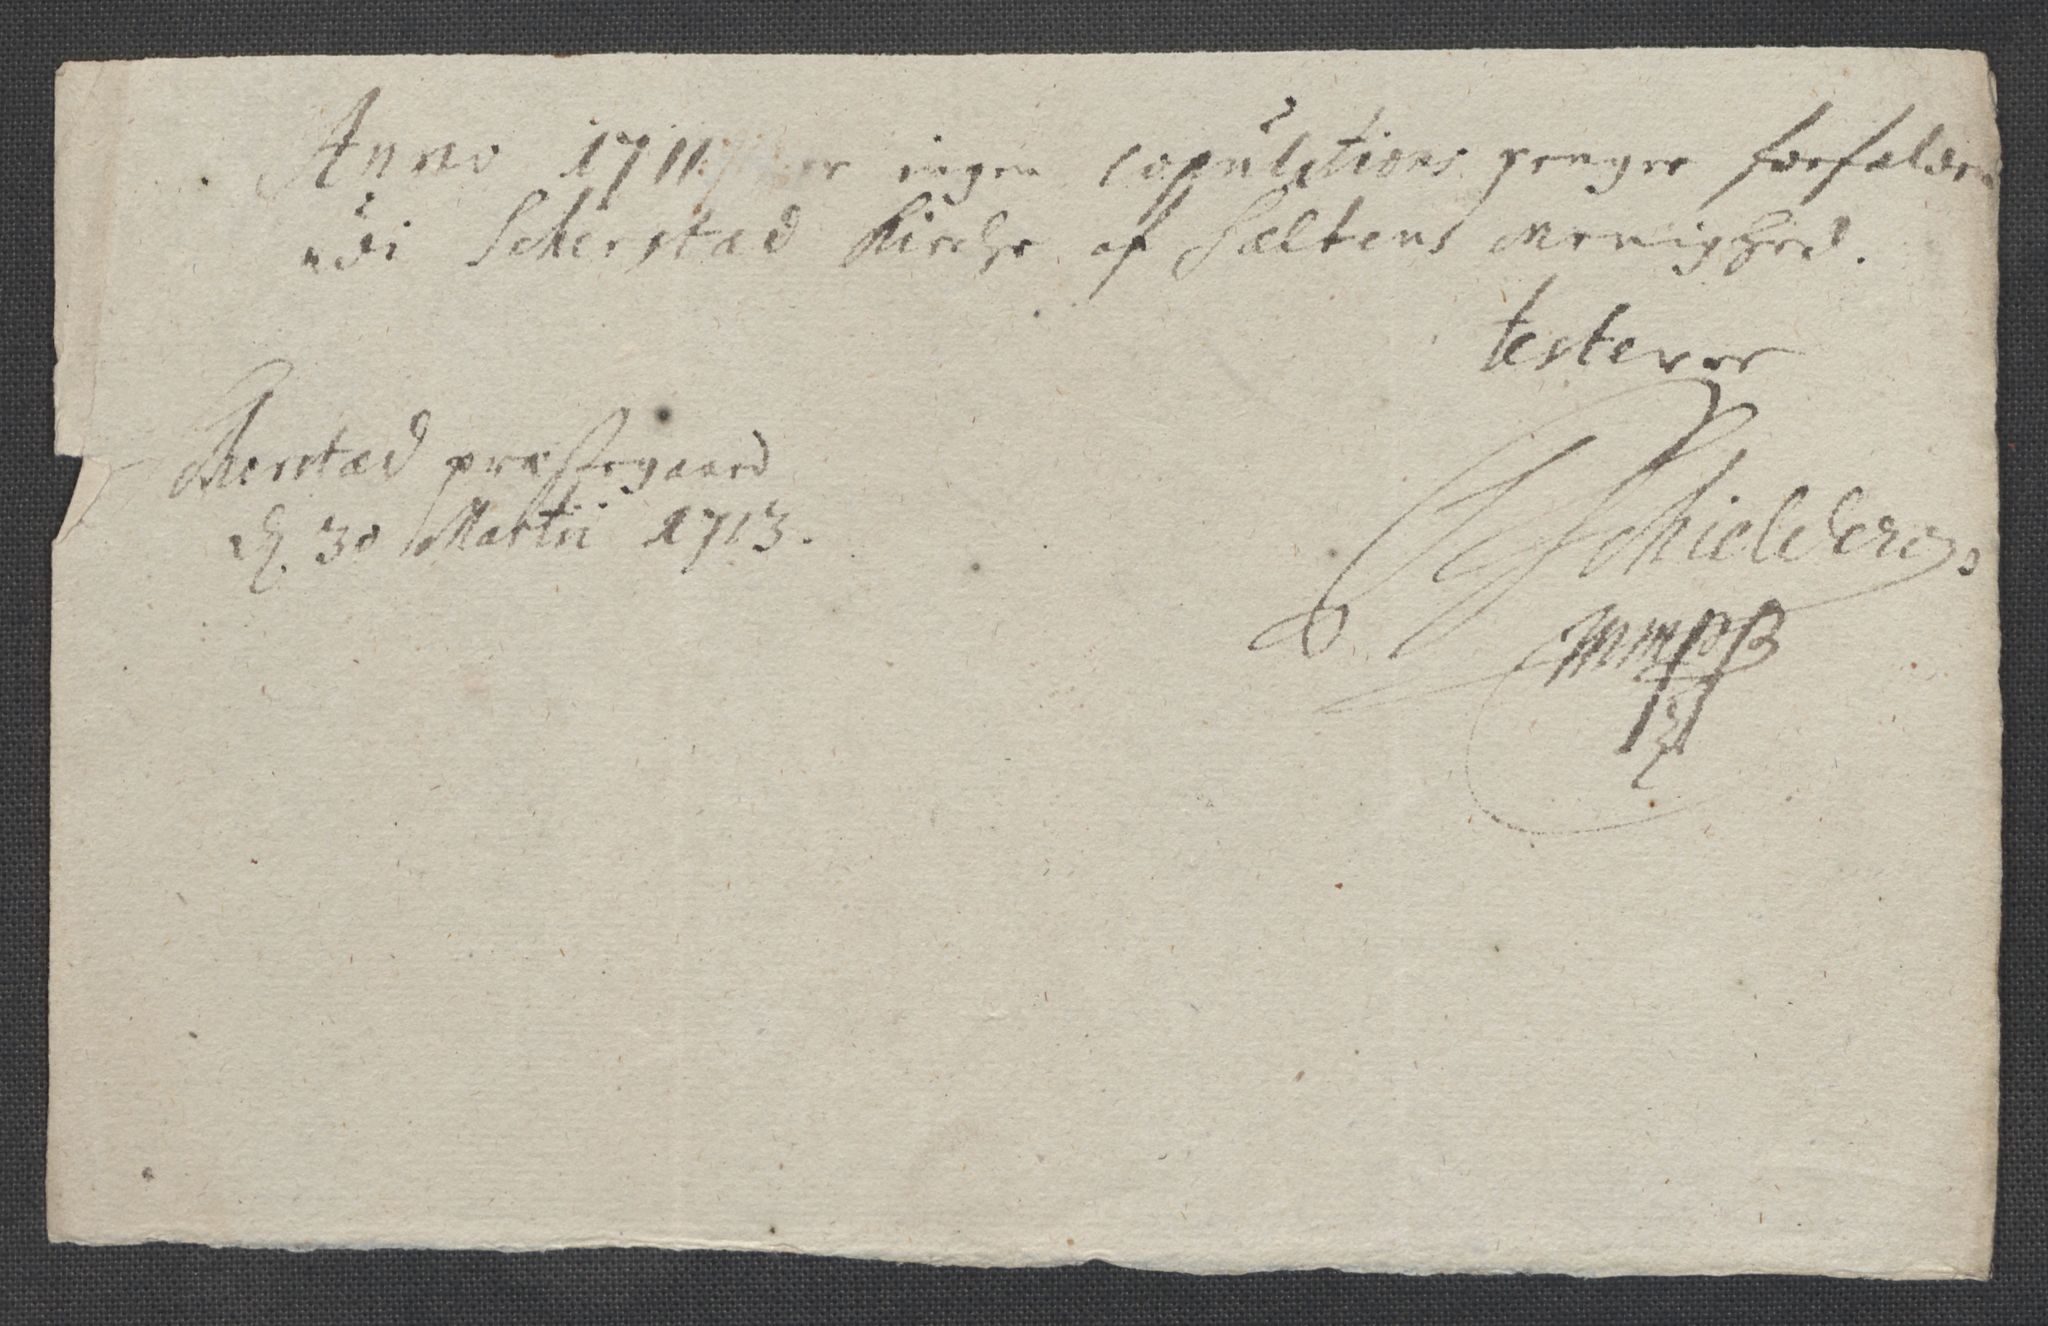 Anno 1711 er ingen copulations penge forfalden
udi Scherstad Kirche af Saltens Menighed.
testerer
Scherstad præstegaard
d. 30 Martii 1713.
Schielderup
mmppß